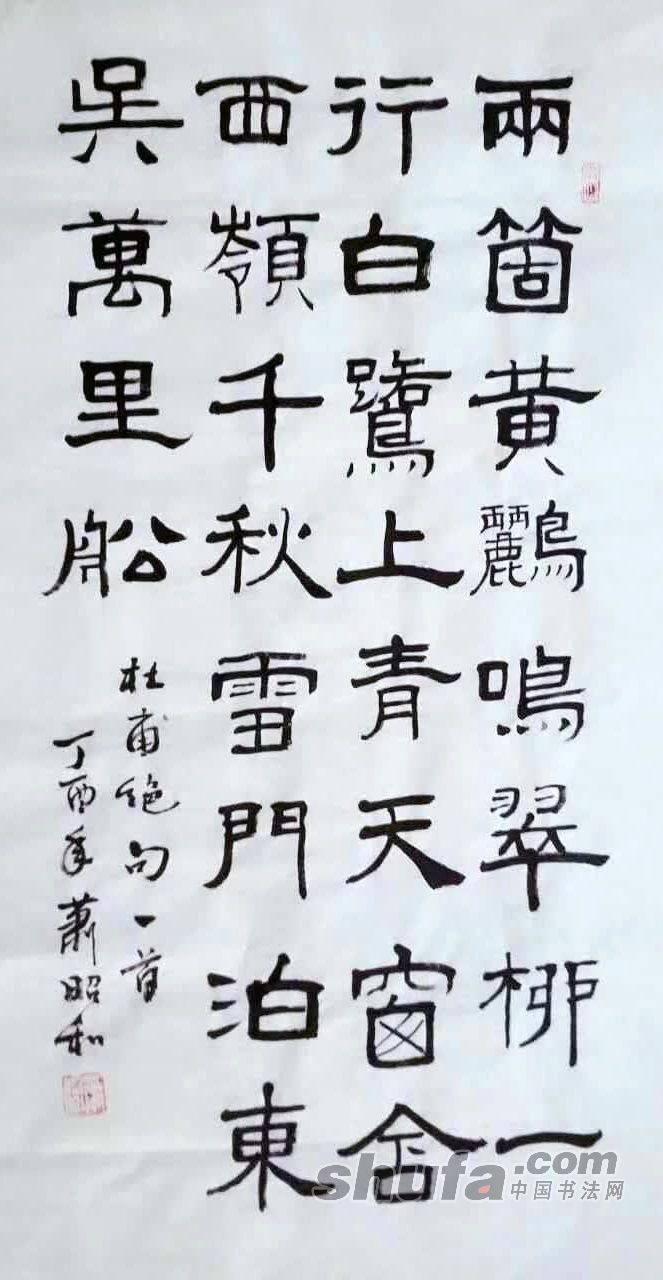 兩箇黄鸝鳴翠栁一
行白鷺上青天窗含
西嶺千秋雪門泊東
吳萬里船
杜甫絶句一首
丁酉年蕭昭和
shufa.com
中国书法网